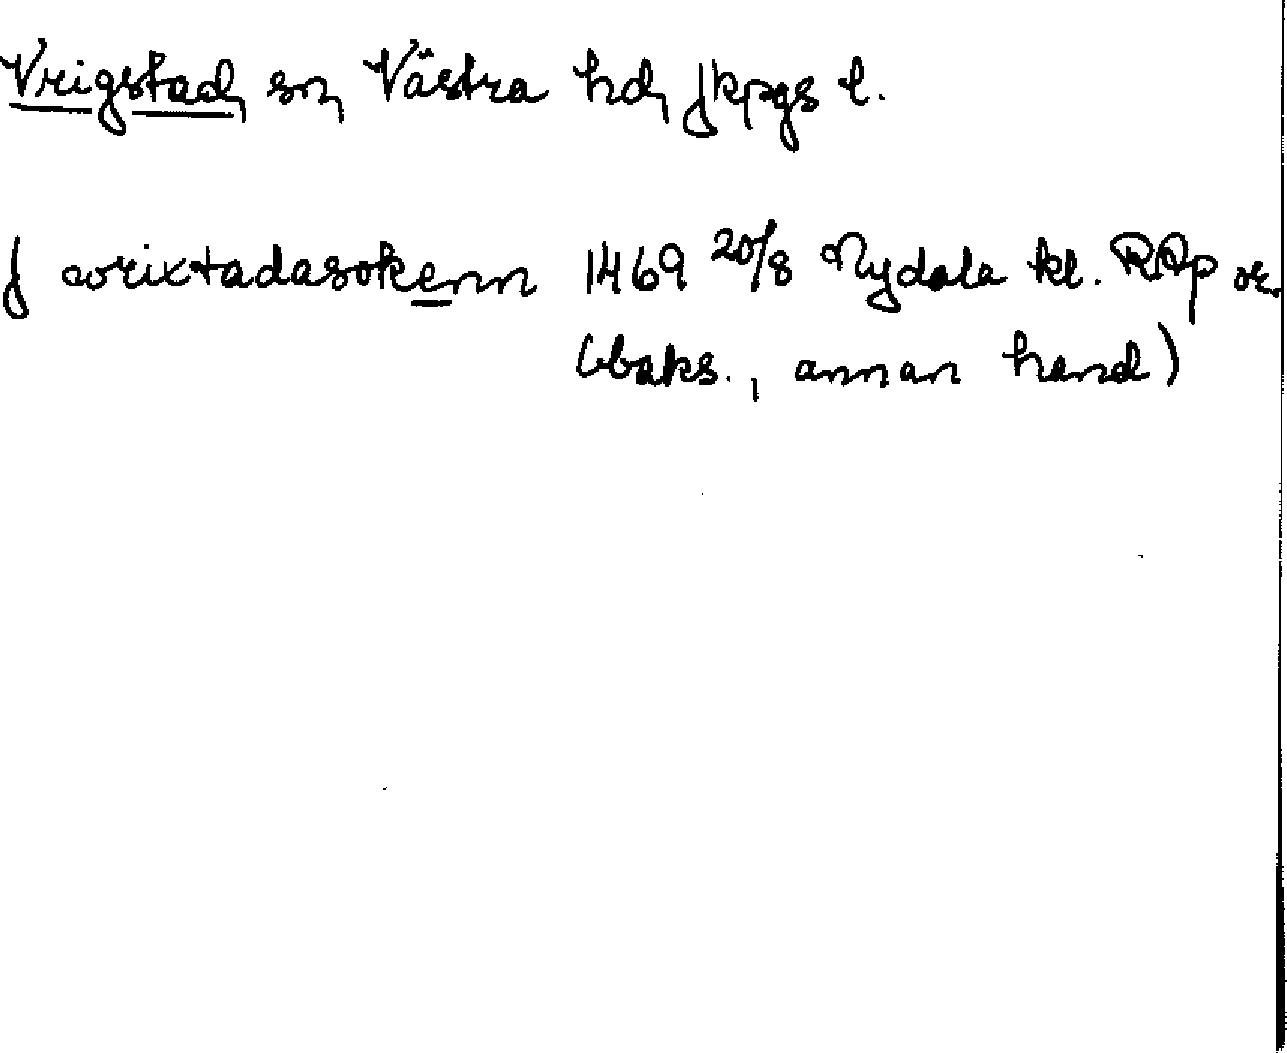 Vrigstad, sn, Västra hd, Jkpgs l.
J wrixtadasokenn 1469 20/8 Nydala kl. RAp or.
(baks., annan hand)